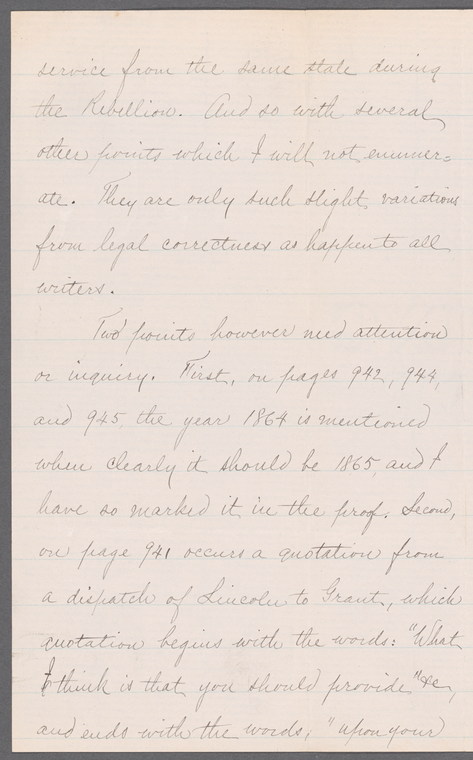 service from the same state during
the Rebellion. And so with several
other points which I will not enumer=
ate. They are only such slight variations
from legal correctness as happen to all
writers.
Two points however need attention
or inquiry. First, on pages 942, 944,
and 945, the year 1864 is mentioned
when clearly it should be 1865, and I
have so marked it in the proof. Second,
on page 941 occurs a quotation from
a dispatch of Lincoln to Grant, which
quotation begins with the words: "What
I think is that you should provide" &c,
and ends with the words; "upon your